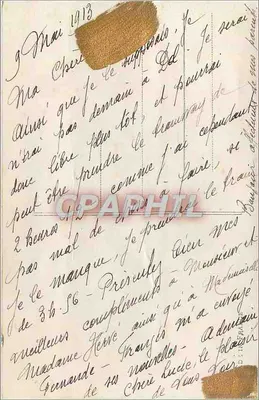 9 Mai 1913
Ma Chère
Ainsi que je le supposais, je
n'irai pas demain à Dol. Je serai
donc libre plus tôt, et pourrai
peut être prendre le tramway de
2 heures 1/2 comme j'ai cependant
pas mal de à faire, si
je le manque, je prendrai le train
de 3h.56 - Présentez bien mes
meilleurs compliments à Monsieur et
Madame Hervé ainsi qu'à Mademoiselle
Fernande - François m'a envoyé
de ses nouvelles - A demain
Chère Lucie, le plaisir
de vous voir
CPAPHIL